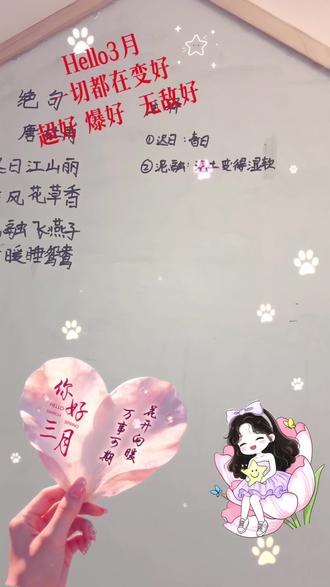 Hello3月
一切都在变好
超好 爆好 无敌好
绝句
唐
日江山丽
风花草香
融飞燕子
暖睡鸳鸯
①迟日:春日
②泥融:泥土变得湿软
你好
HELLO
MARCH
三月
花开向暖
万事可期